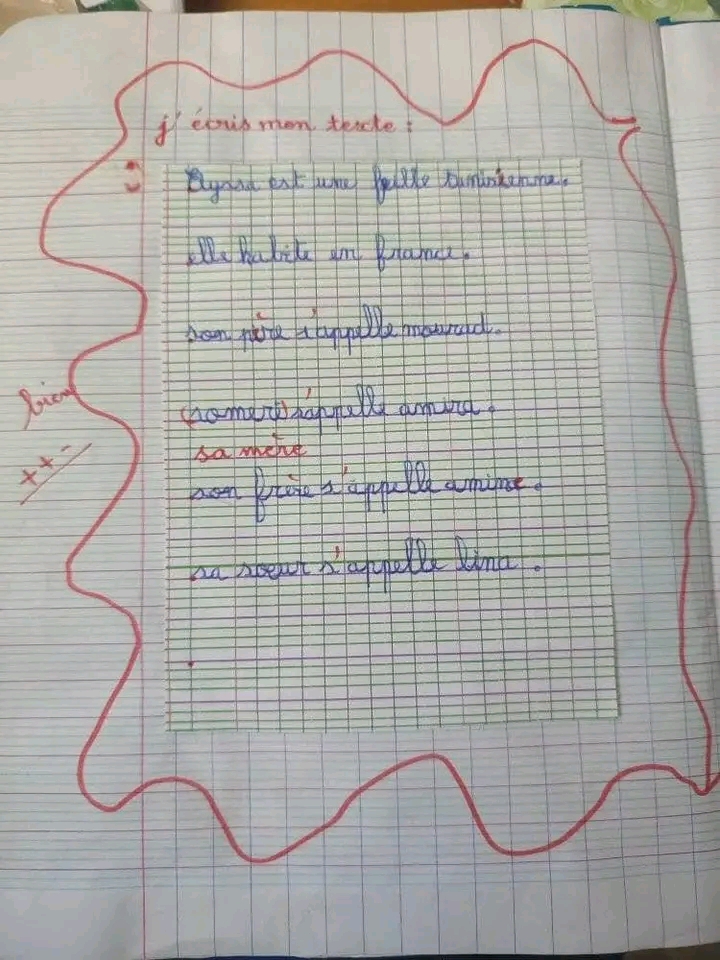 j'écris mon texte :
est une feille tunisienne.
elle habite en france.
son père s'appelle mourad.
(somere) s'appelle amira.
sa mère
son frère s'appelle amine.
sa soeur s'appelle lina.
bien
++-